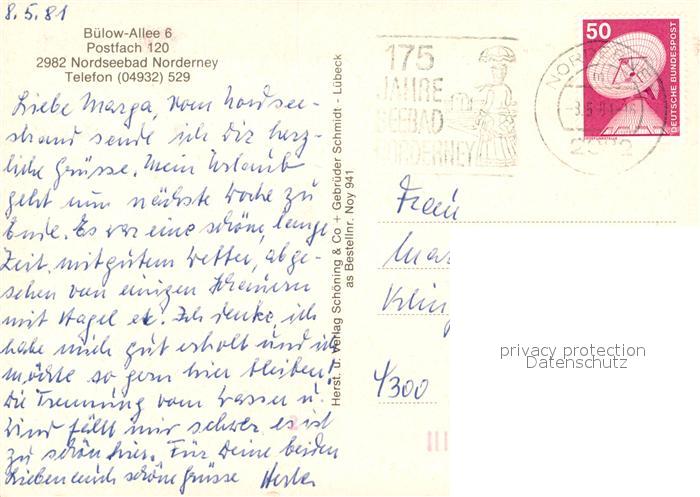 8.5.81
Bülow-Allee 6
Postfach 120
2982 Nordseebad Norderney
Telefon (04932) 529
Liebe Marga, vom Nordsee-
strand sende ich Dir herz-
liche Grüsse. Mein Urlaub
geht nun nächste Woche zu
Ende. Es war eine schöne, lange
Zeit mit gutem Wetter, abge-
sehen von einigen Schauern
mit Hagel etc. Ich denke, ich
habe mich gut erholt und ich
möchte so gern hier bleiben!
Die Trennung vom Wasser u.
Wind fällt mir schwer, es ist
zu schön hier. Für Deine beiden
Lieben auch schöne Grüsse
Herst. u. Verlag Schöning & Co + Gebrüder Schmidt - Lübeck
as Bestellnr. Noy 941
175
JAHRE
SEEBAD
NORDERNEY
50
DEUTSCHE BUNDESPOST
Frau
4300
privacy protection
Datenschutz